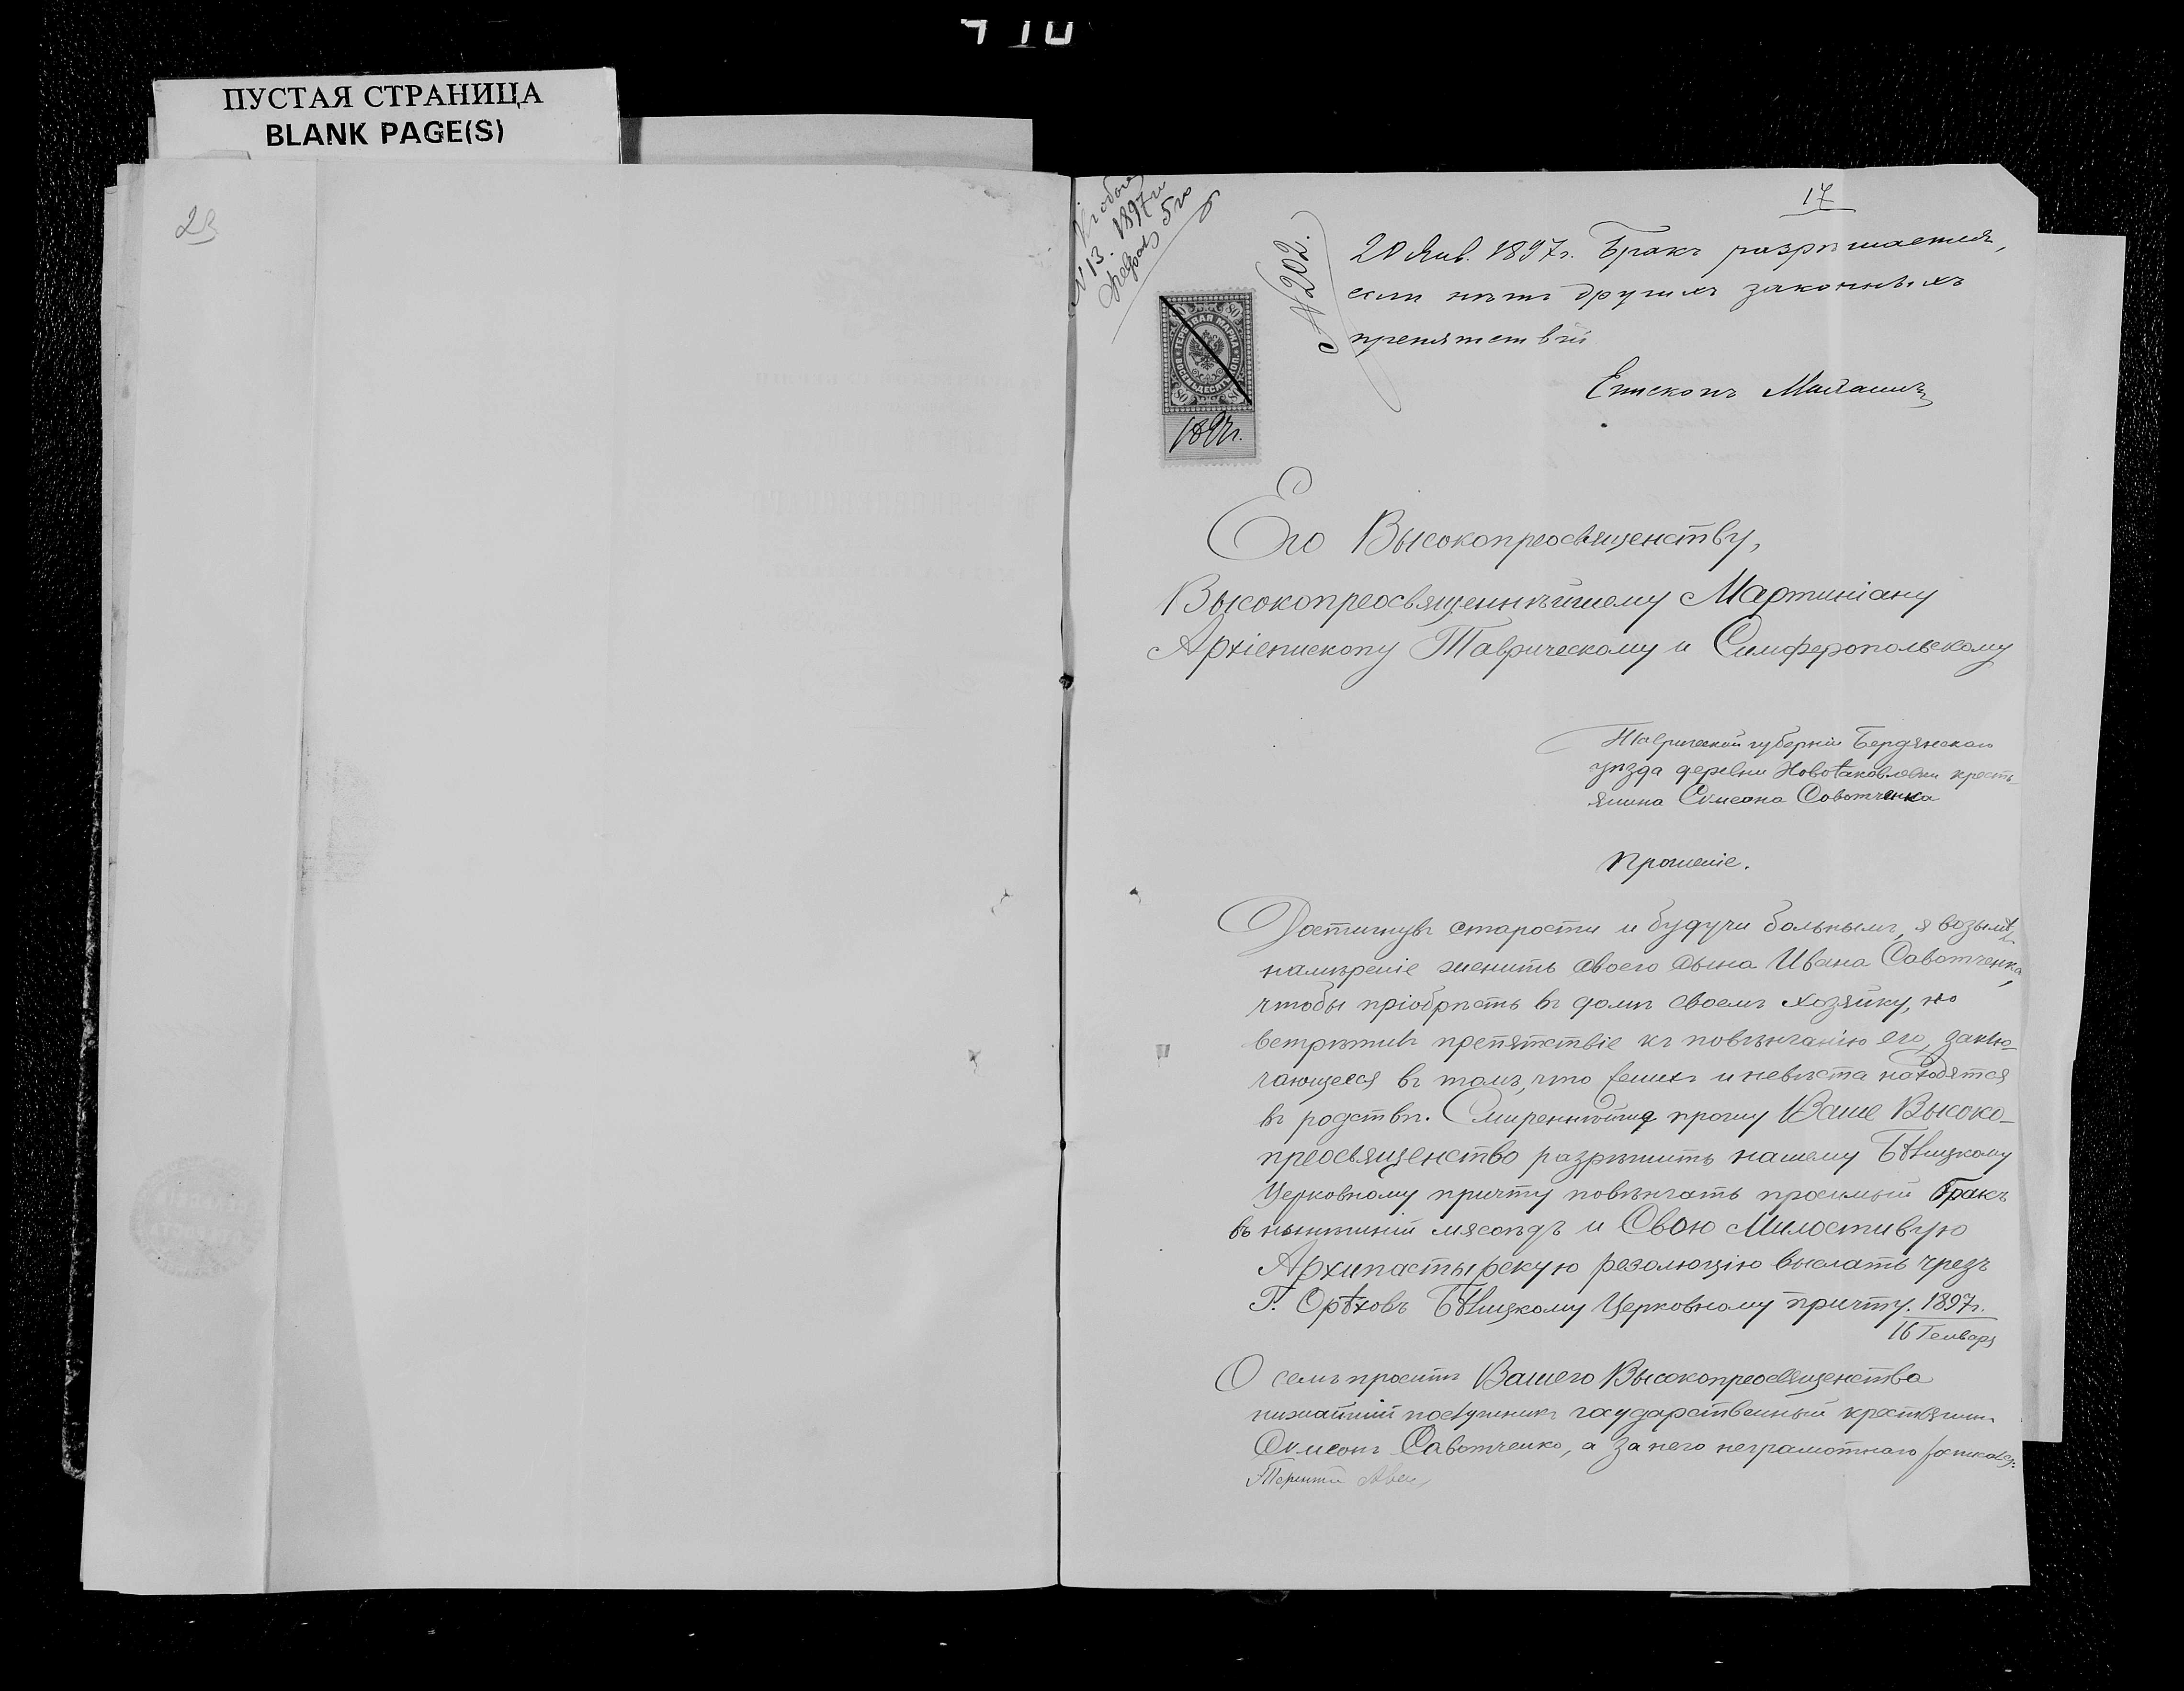 410
ПУСТАЯ СТРАНИЦА
BLANK PAGE(S)
23
17
№ 13. 1897 г.
№ 202.
20 Янв. 1897 г. Бракъ разрѣшается,
если нѣтъ другихъ законныхъ
препятствій
Епископъ
80 80
ГЕРБОВАЯ МАРКА
ВОСЕМЬДЕСЯТЪ КОП.
80
1897 г.
Его Высокопреосвященству,
Высокопреосвященнѣйшему Мартиніану
Архіепископу Таврическому и Симферопольскому
Таврической губерніи Бердянскаго
уѣзда деревни Новоѣаковлевки кресть-
янина Сѵмеона Савотченка
Прошеніе.
Достигнувъ старости и будучи больнымъ, я возымѣлъ
намѣреніе женить своего сына Ивана Савотченка,
чтобы пріобрѣсть въ домъ своемъ хозяйку, но
встрѣтивъ препятствіе къ повѣнчанію его, заклю-
чающееся въ томъ, что женихъ и невѣста находятся
въ родствѣ. Смиреннѣйше прошу Ваше Высоко-
преосвященство разрѣшить нашему Бѣлицкому
Церковному причту повѣнчать просимый бракъ
въ нынѣшній мясоѣдъ и Свою Милостивую
Архипастырскую резолюцію выслать чрезъ
Г. Орѣховъ Бѣлицкому Церковному причту. 1897 г.
16 Генваря
О семъ проситъ Вашего Высокопреосвященства
нижайшій послушникъ государственный крестьянинъ
Сѵмеонъ Савотченко, а за него неграмотнаго
Терентій